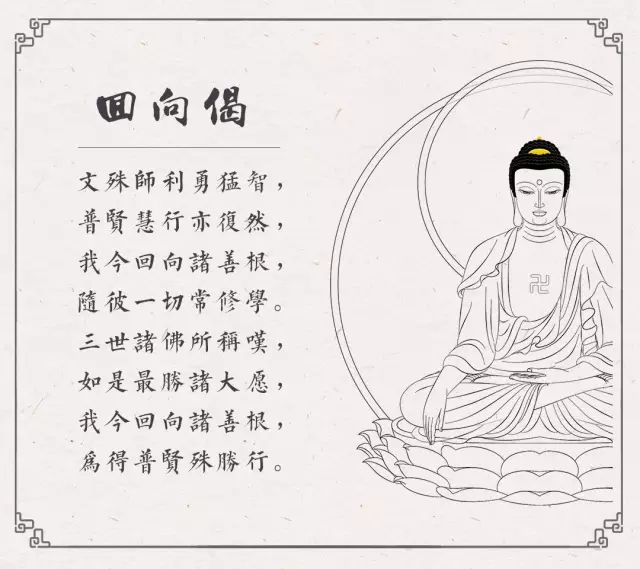 回向偈
文殊師利勇猛智，
普賢慧行亦復然，
我今回向諸善根，
隨彼一切常修學。
三世諸佛所稱嘆，
如是最勝諸大愿，
我今回向諸善根，
爲得普賢殊勝行。
卍